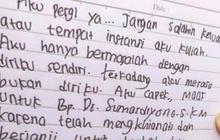 Aku pergi ya... Jangan salahin kelua
atau tempat instansi aku kuliah.
Aku hanya bermasalah dengan
diriku sendiri. Terkadang aku merasa
bukan diriku. Aku capek, MAAF
untuk Bp. Ds. Sumardiyono, S.KM
karena telah mengkhianati dan
berjanji untuk